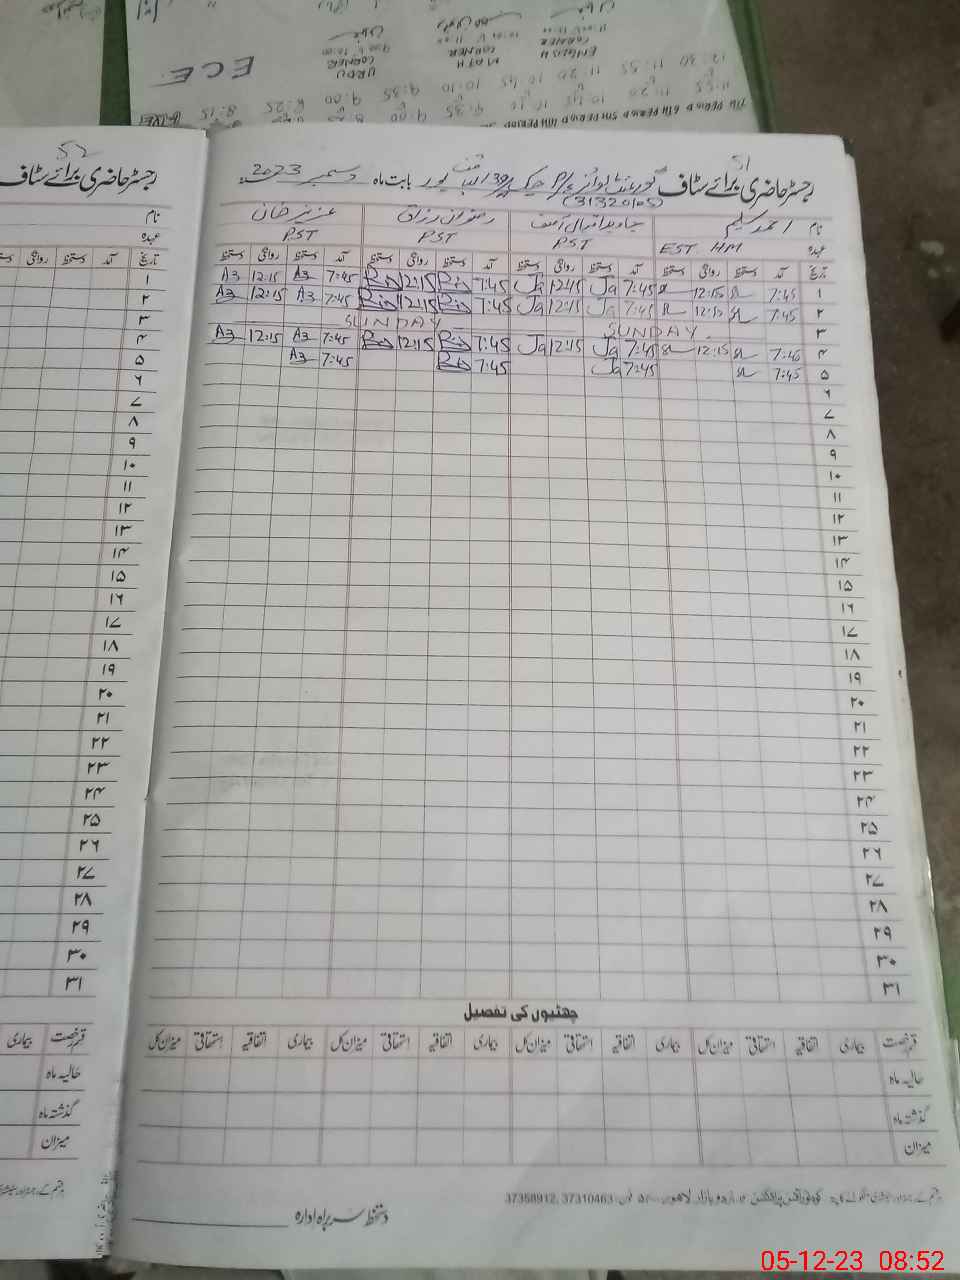 ECE
URDU CORNER
MATH CORNER
ENGLISH CORNER
12:30 11:55 11:20 10:45 10:10 9:35 9:00
11:55 11:20 10:45 10:10 9:35 9:00 8:25 8:15
7TH PERIOD 6TH PERIOD 5TH PERIOD 4TH PERIOD
52
رجسٹر حاضری برائے سٹاف
نام
عہدہ
تاریخ آمد دستخط روانگی دستخط
۱
۲
۳
۴
۵
۶
۷
۸
۹
۱۰
۱۱
۱۲
۱۳
۱۴
۱۵
۱۶
۱۷
۱۸
۱۹
۲۰
۲۱
۲۲
۲۳
۲۴
۲۵
۲۶
۲۷
۲۸
۲۹
۳۰
۳۱
قسم رخصت بیماری
حالیہ ماہ
گذشتہ ماہ
میزان
51
رجسٹر حاضری برائے سٹاف گورنمنٹ بوائز بابت ماہ دسمبر 2023ء
(31320105)
نام احمد سلیم جاوید اقبال رضوان رزاق عزیز خان
عہدہ EST HM PST PST PST
تاریخ آمد دستخط روانگی دستخط آمد دستخط روانگی دستخط آمد دستخط روانگی دستخط آمد دستخط روانگی دستخط
۱ 7:45 12:15 7:45 Ja 12:15 Ja 7:45 12:15 7:45 A3 12:15 A3
۲ 7:45 12:15 7:45 Ja 12:15 Ja 7:45 12:15 7:45 A3 12:15 A3
۳ SUNDAY SUNDAY
۴ 7:46 12:15 7:45 Ja 12:15 Ja 7:45 12:15 7:45 A3 12:15 A3
۵ 7:45 7:45 Ja 7:45 7:45 A3
۶
۷
۸
۹
۱۰
۱۱
۱۲
۱۳
۱۴
۱۵
۱۶
۱۷
۱۸
۱۹
۲۰
۲۱
۲۲
۲۳
۲۴
۲۵
۲۶
۲۷
۲۸
۲۹
۳۰
۳۱
چھٹیوں کی تفصیل
قسم رخصت بیماری اتفاقیہ استحقاقی میزان کل بیماری اتفاقیہ استحقاقی میزان کل بیماری اتفاقیہ استحقاقی میزان کل بیماری اتفاقیہ استحقاقی میزان کل
حالیہ ماہ
گذشتہ ماہ
میزان
اردو بازار لاہور 37358912, 37310463
دستخط سربراہ ادارہ
05-12-23 08:52